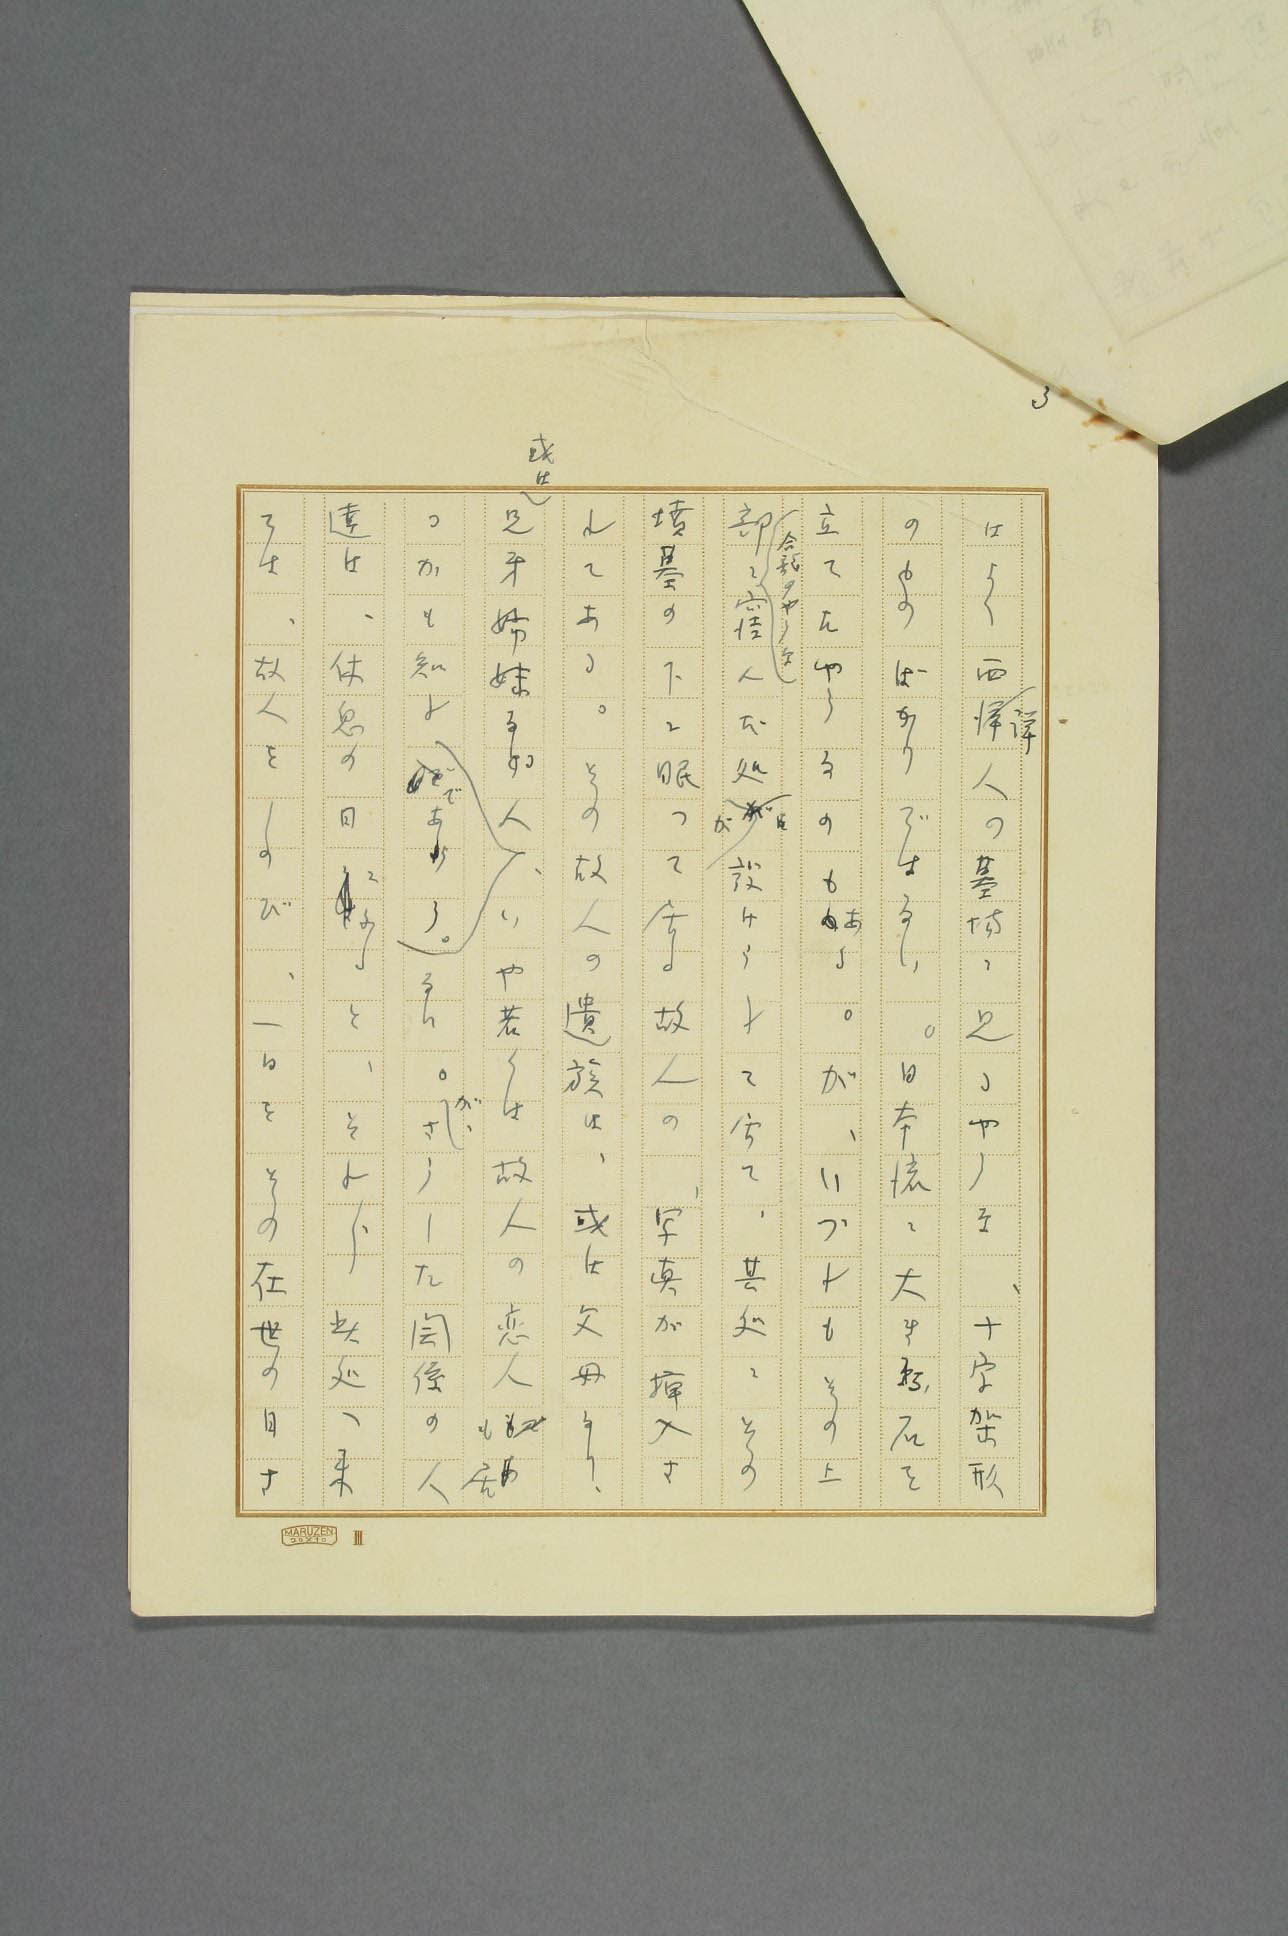 3
はよく西洋人の墓場に見るやうな、十字架形
のものばかりではない。日本流に大き石を
立てたやうなのもある。が、いづれもその上
部に合龕のやうな窪んだ処が設けられて居て、其処にその
墳墓の下に眠つて居る故人の、写真が挿入さ
れてある。その故人の遺族は、或は父母なり、
或は兄弟姉妹なる人、いや若くは故人の恋人も居
つかも知れない。が、さうした関係の人
達は、休息の日になると、それ〴〵此処へ来
ては、故人をしのび、一日をその在世の日さ
MARUZEN
20×10
III